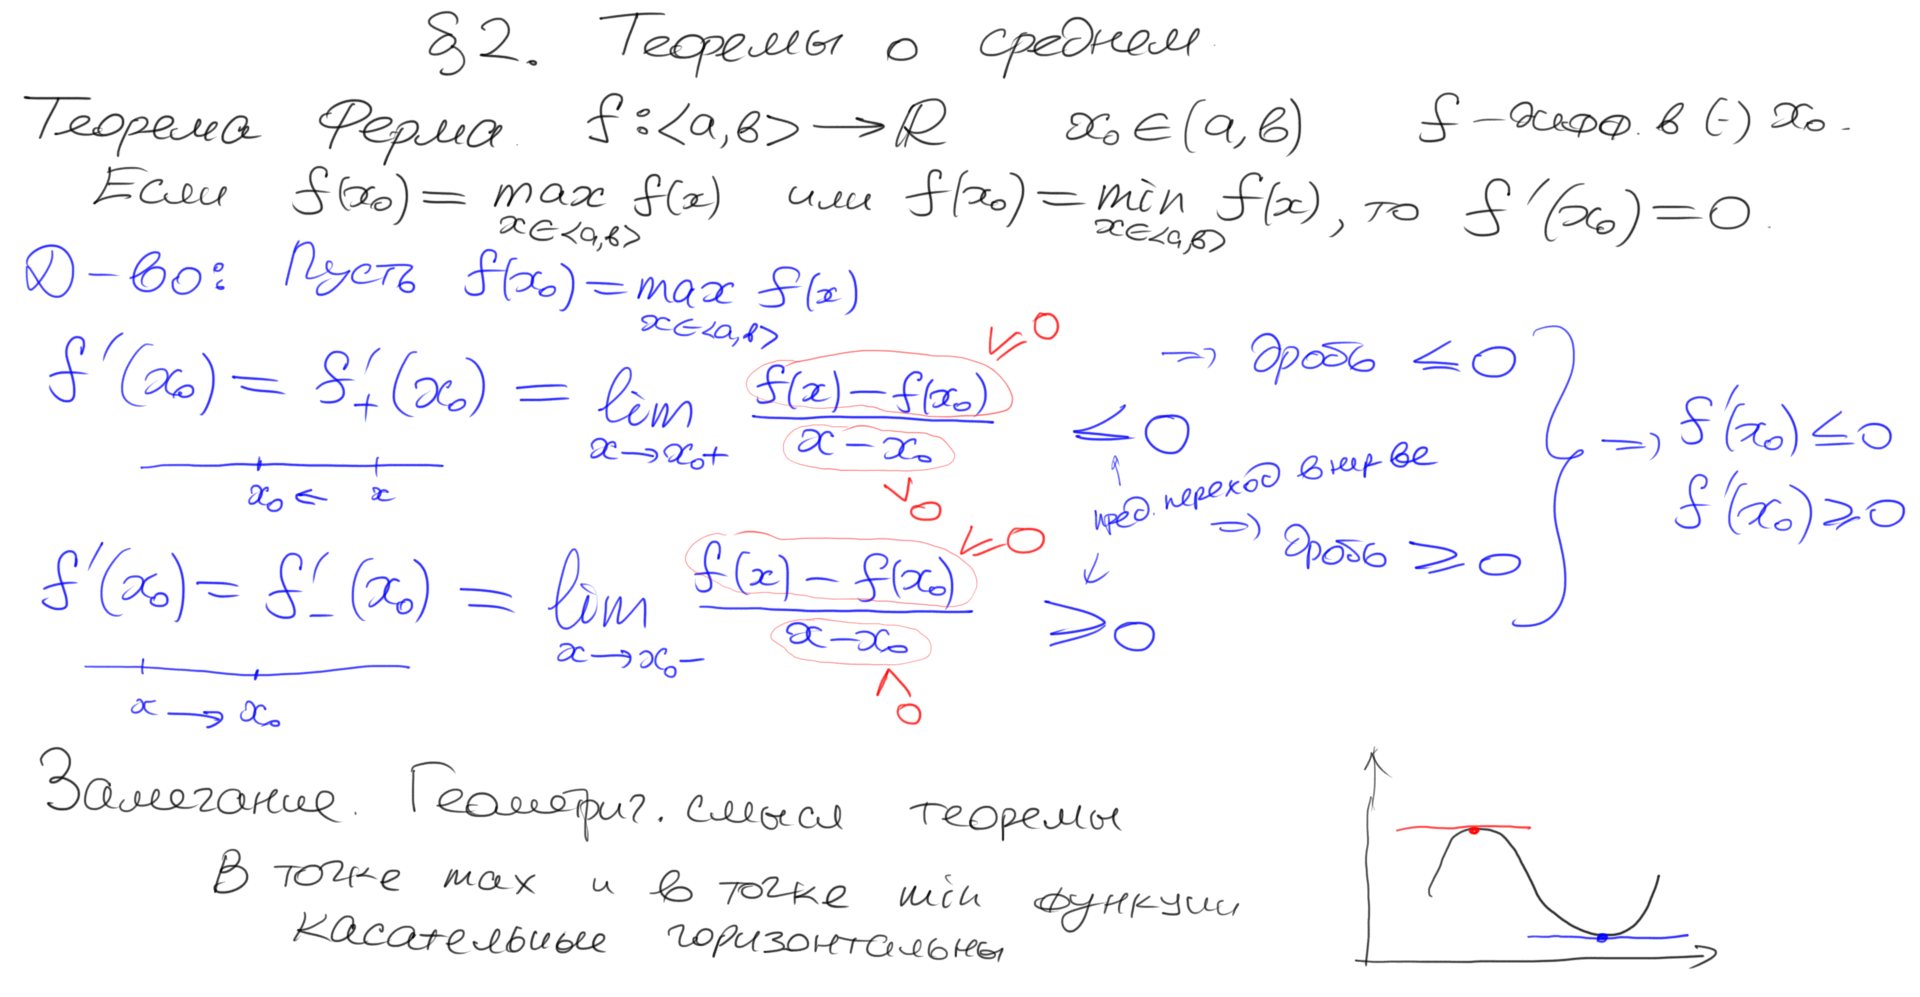 §2. Теоремы о среднем
Теорема Ферма. f:<a,b> → ℝ x₀∈(a,b) f – дифф. в (·) x₀.
Если f(x₀) = max f(x) или f(x₀) = min f(x), то f'(x₀) = 0.
x∈<a,b> x∈<a,b>
Д-во: Пусть f(x₀) = max f(x)
x∈<a,b>
f'(x₀) = f'₊(x₀) = lim (f(x) – f(x₀))/(x – x₀) ≤ 0 ⇒ дробь ≤ 0
x→x₀+
≤ 0
x₀ ← x
> 0
пред. переход в нер-ве
⇒ f'(x₀) ≤ 0
f'(x₀) ≥ 0
f'(x₀) = f'₋(x₀) = lim (f(x) – f(x₀))/(x – x₀) ≥ 0 ⇒ дробь ≥ 0
x→x₀–
≤ 0
x → x₀
< 0
Замечание. Геометрич. смысл теоремы
В точке max и в точке min функции
касательные горизонтальны